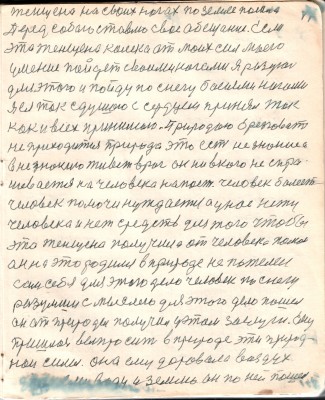 женщена на своих ногах по земле пошла
Перед собою ставлю свое обещание. Если
эта женщена калека от моих сил моего
умение пойдет своими ногами Я разую
для этого и пойду по снегу босыми ногами
Я ее так с душою с сердцем принял так
как и всех принимаю. Природою брезговать
не приходится природа это есть не знание а
в незнании живет враг он никого не спра
шивается на человека напост человек болеет
человек помочи нуждается у нас нету
человека и нет средств для того чтобы
эта женщена получила от человека
она это родила в природе не пожелел
сам себя для этого дело человек по снегу
разумши с мыслею для этого дело пошел
он от природы получил в этом заслуги. Ему
пришлось выпросить в природе эти природ
ной силы. она ему даровала воздух
воду и землю он по ней пошел